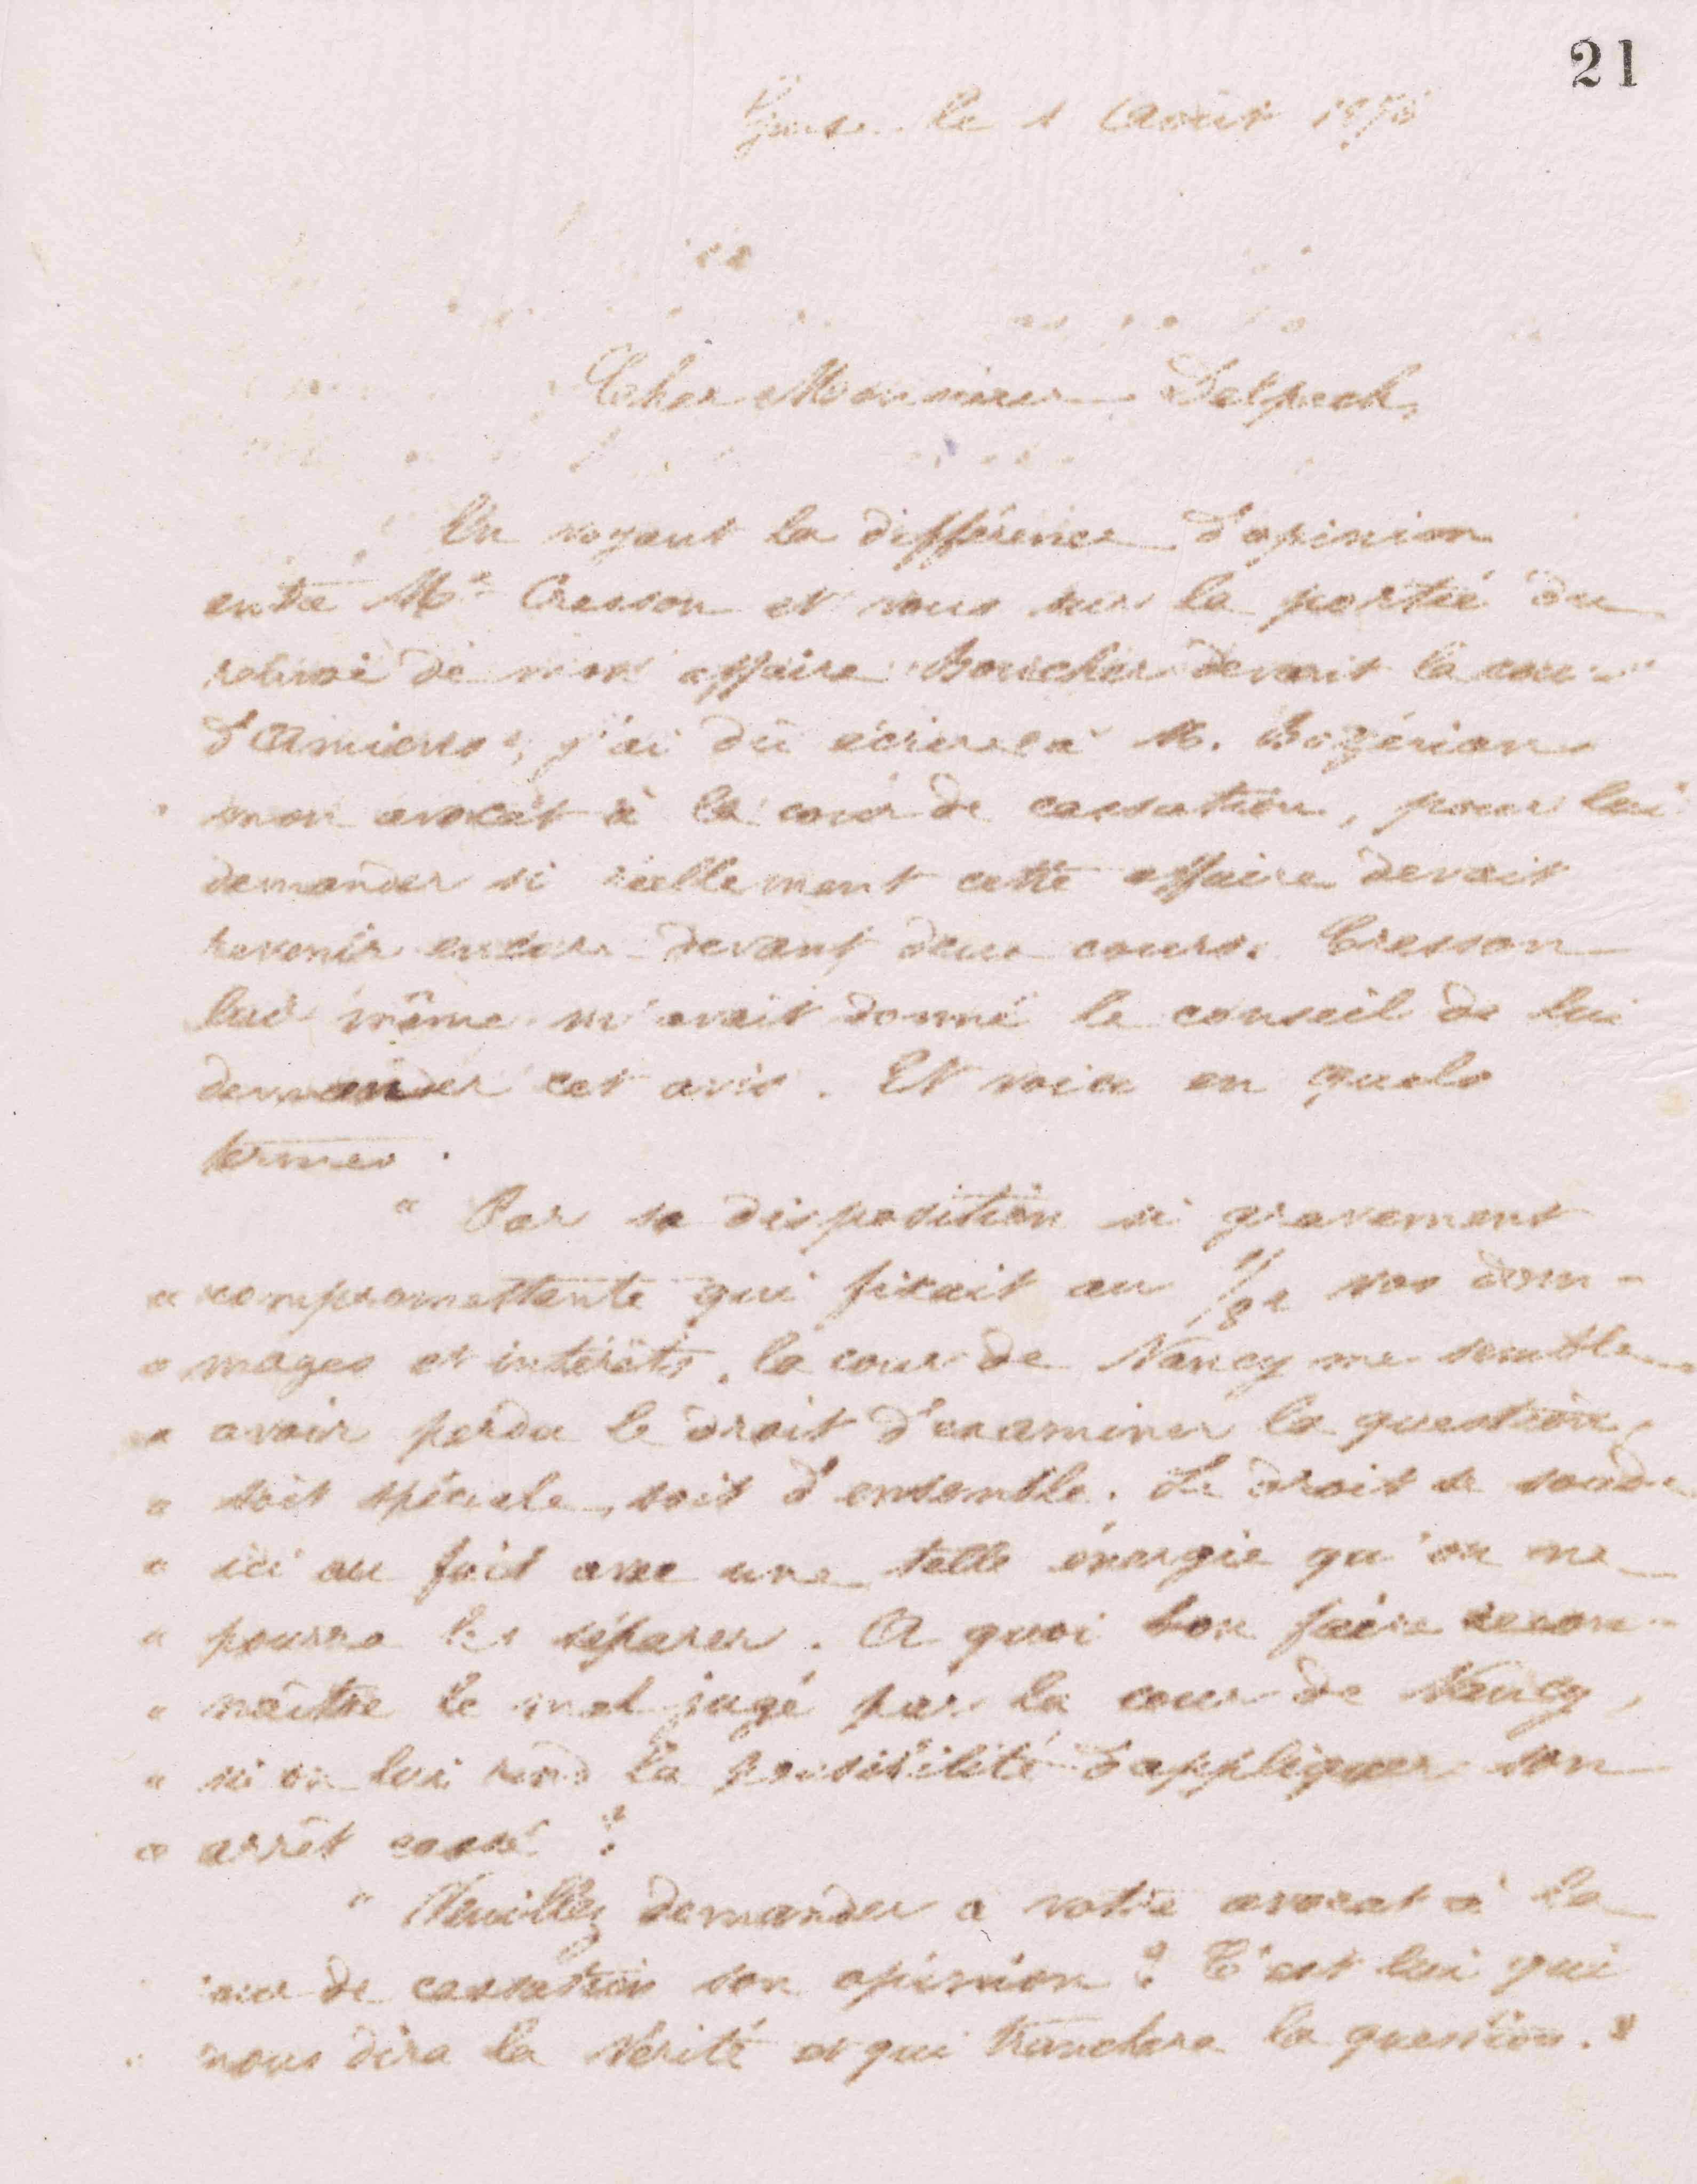 21
Guise le 1 Août 1878
Cher Monsieur Delpech,
En voyant la différence d'opinion
entre Me Cresson et vous sur la portée du
renvoi de mon affaire Boucher devant la cour
d'Amiens, j'ai dû écrire à M. Bozérian
mon avocat à la cour de cassation, pour lui
demander si réellement cette affaire devait
revenir encore devant deux cours. Cresson
lui même m'avait donné le conseil de lui
demander cet avis. Et voici en quels
termes.
" Par sa disposition si gravement
" compromettante qui fixait au 1/8e vos dom-
" mages et intérêts, la cour de Nancy me semble
" avoir perdu le droit d'examiner la question,
" soit spéciale, soit d'ensemble. Le droit se soude
" ici au fait avec une telle énergie qu'on ne
" pourra les séparer. A quoi bon faire recon-
" naître le mal jugé par la cour de Nancy,
" si on lui rend la possibilité d'appliquer son
" arrêt cassé ?
" Veuillez demander a votre avocat à la
" cour de cassation son opinion ? C'est lui qui
" nous dira la vérité et qui tranchera la question. "